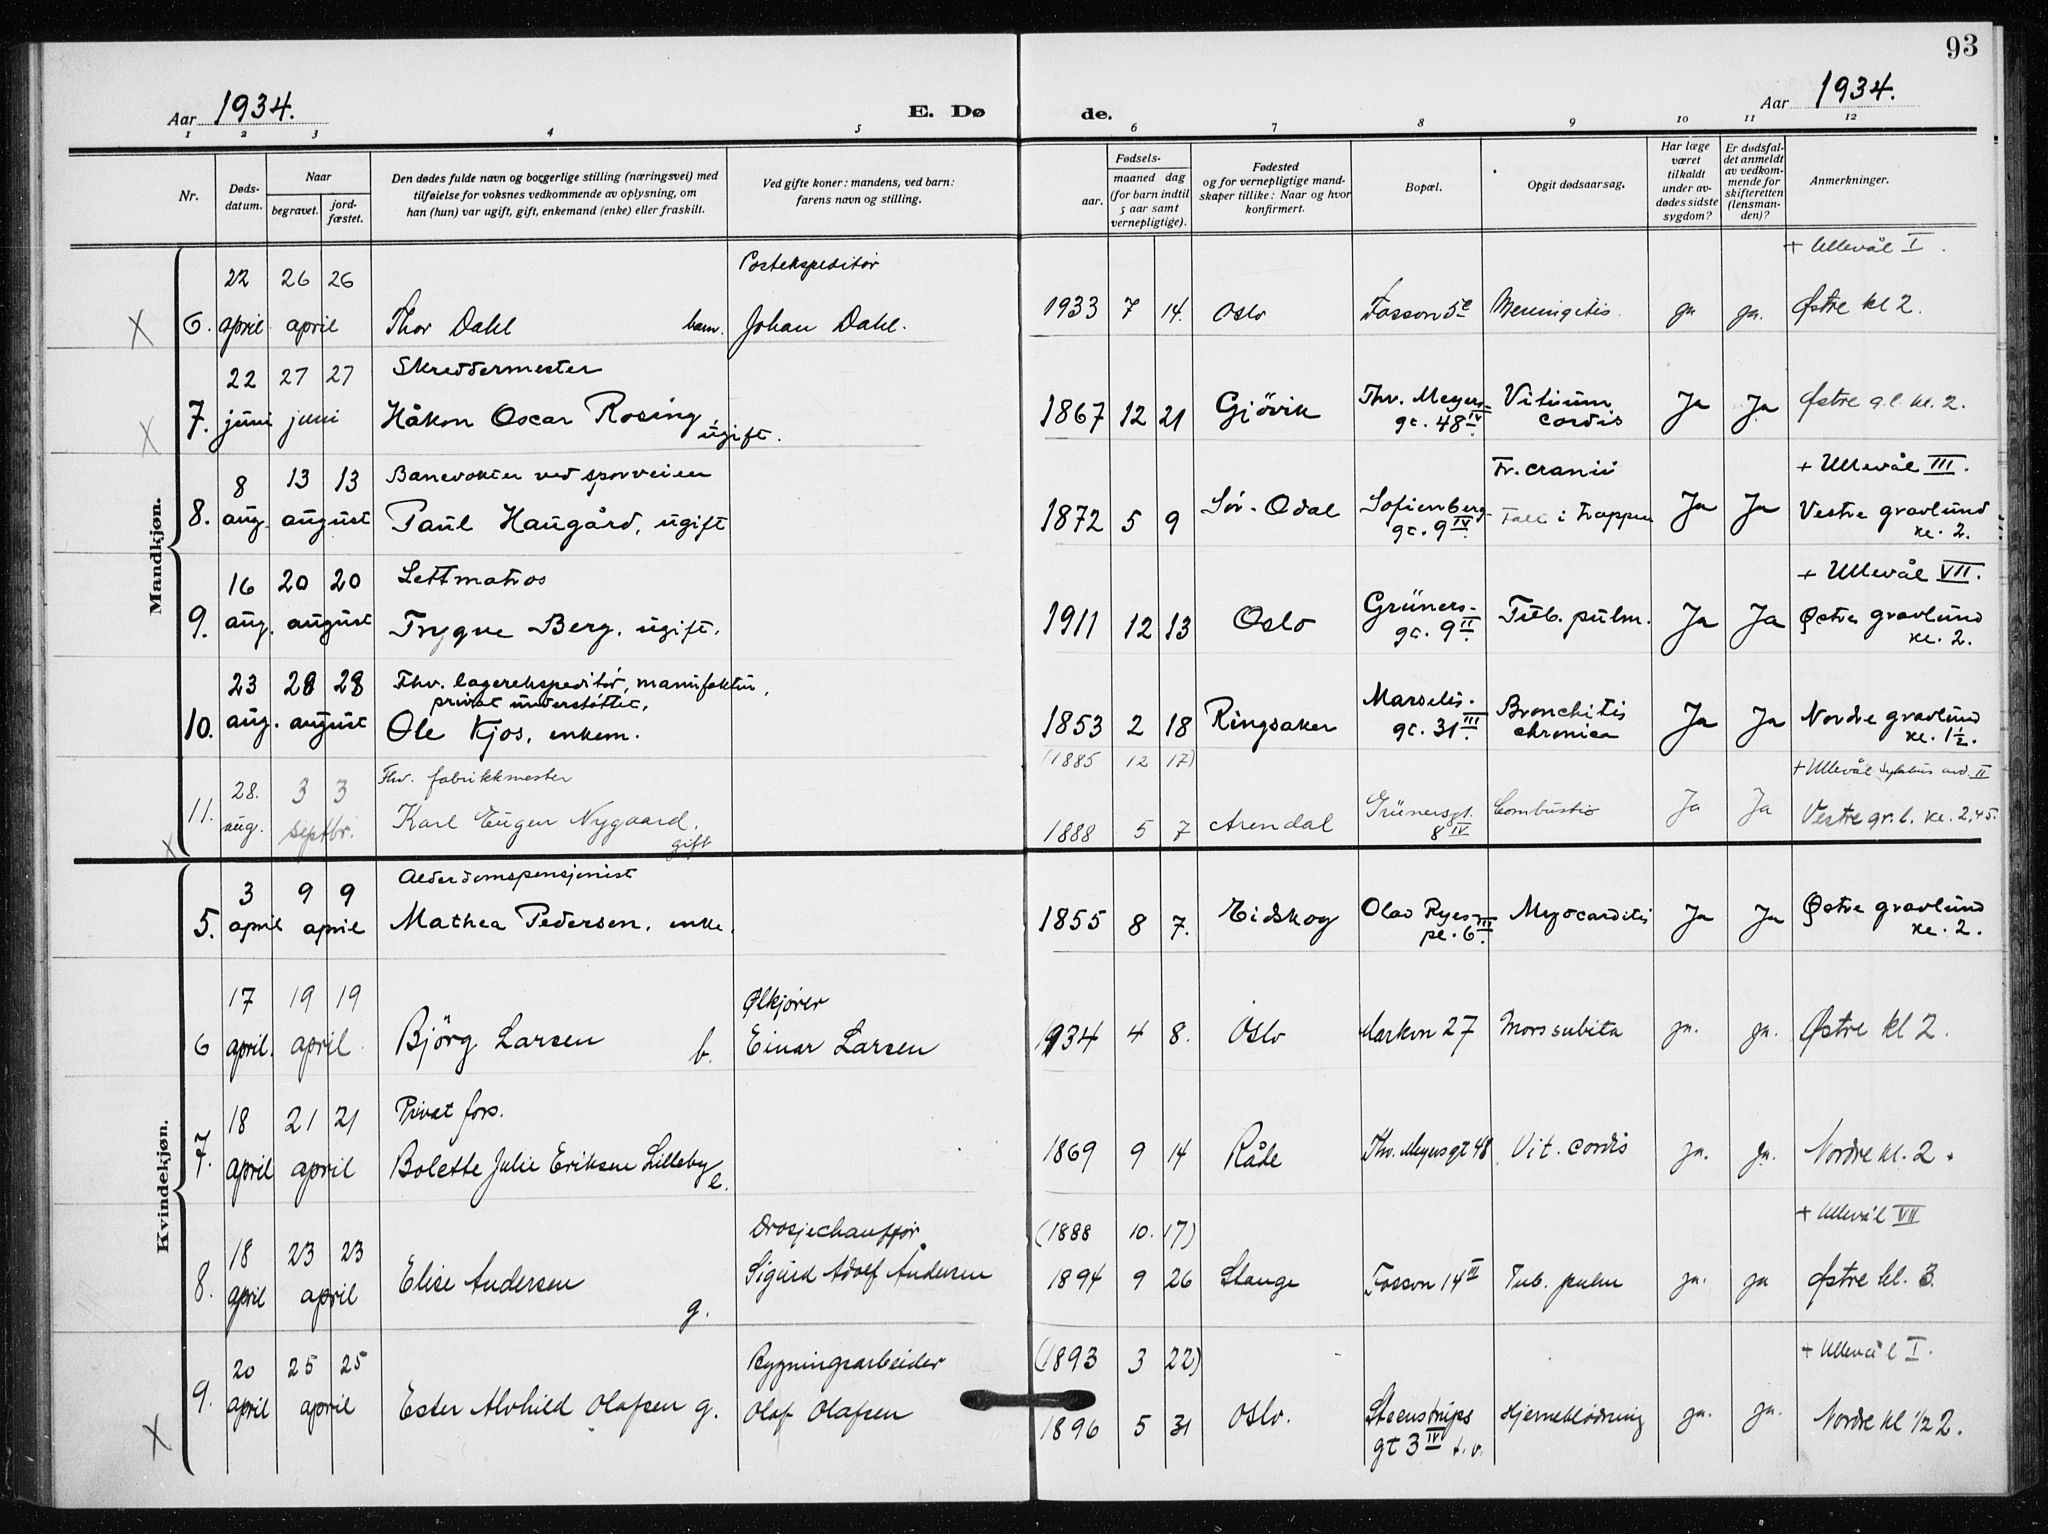 93
Aar 1934.
E. Dø
de.
Aar 1934.
1 2 3 4 5 6 7 8 9 10 11 12
Nr.
Døds-
datum.
Naar
begravet.
jord-
fæstet.
Den dødes fulde navn og borgerlige stilling (næringsvei) med
tilføielse for voksnes vedkommende av oplysning, om
han (hun) var ugift, gift, enkemand (enke) eller fraskilt.
Ved gifte koner: mandens, ved barn:
farens navn og stilling.
Fødsels-
aar.
maaned dag
(for barn indtil
5 aar samt
vernepligtige).
Fødested
og for vernepligtige mand-
skaper tillike: Naar og hvor
konfirmert.
Bopæl.
Opgit dødsaarsag.
Har læge
været
tilkaldt
under av-
dødes sidste
sygdom?
Er dødsfal-
det anmeldt
av vedkom-
mende for
skifteretten
(lensman-
den)?
Anmerkninger.
Mandkjøn.
Postekspeditør + Ullevål I.
22 26 26
6. april april Thor Dahl barn. Johan Dahl. 1933 7 14. Oslo Fosson 5 Meningitis. ja ja. Østre kl 2.
X
22 27 27 Skreddermester
7. juni juni Håkon Oscar Rosing ugift. 1867 12 21 Gjøvik Thv. Meyers- gt. 48 IV Vitium cordis Ja Ja Østre g.l. kl. 2.
X
8 13 13 Banevokter ved sporveien Fr. cranii + Ullevål III.
8. aug. august Paul Haugård, ugift 1872 5 9 Sør-Odal Sofienberg- gt. 9 IV. Fall i trappen Ja Ja Vestre gravlund kl. 2.
16 20 20 Lettmatros + Ullevål VII.
9. aug. august Trygve Berg, ugift. 1911 12 13 Oslo Grüners- gt. 9 II. Tub. pulm. Ja Ja Østre gravlund kl. 2.
23 28 28 Fhv. lagerekspeditør, manufaktur,
privat understøttet.
10. aug. august Ole Kjos, enkem. 1853 2 18 Ringsaker Marselis- gt. 31 III. Bronchitis chronica Ja Ja Nordre gravlund kl. 1½.
28. 3 3 Fhv. fabrikkmester (1885 12 17) + Ullevål avd. II
11. aug. septbr. Karl Eugen Nygaard, gift 1888 5 7 Arendal Grünersgt. 8 IV Combustio Ja Ja Vestre gr.l. kl. 2,45.
X
Kvindekjøn.
3 9 9 Alderdomspensjonist
5. april april Mathea Pedersen, enke. 1855 8 7. Eidskog Olav Ryes pl. 6 III. Myocarditis Ja Ja Østre gravlund kl. 2.
17 19 19 Ølkjører
6 april. april Bjørg Larsen b. Einar Larsen 1934 4 8. Oslo Markvn 27 Mors subita ja. ja. Østre kl 2.
18 21 21 Privat fors.
7. april april Bolette Julie Eriksen Lilleby e. 1869 9 14 Råde Thv. Meyersgt 48 Vit. cordis ja. ja. Nordre kl. 2.
18 23 23 Drosjechauffør (1888 10. 17) + Ullevål VII
8. april april Elise Andersen g. Sigurd Adolf Andersen 1894 9 26 Stange Fosson 14 III Tub. pulm ja. ja Østre kl. 3.
20 25 25 Bygningsarbeider (1893 3 22) + Ullevål I.
9. april april Ester Alvhild Olafsen g. Olaf Olafsen 1896 5 31 Oslo. Steenstrups gt 3 IV t.v. Hjerneblødning ja. ja. Nordre kl 1/2 2.
X